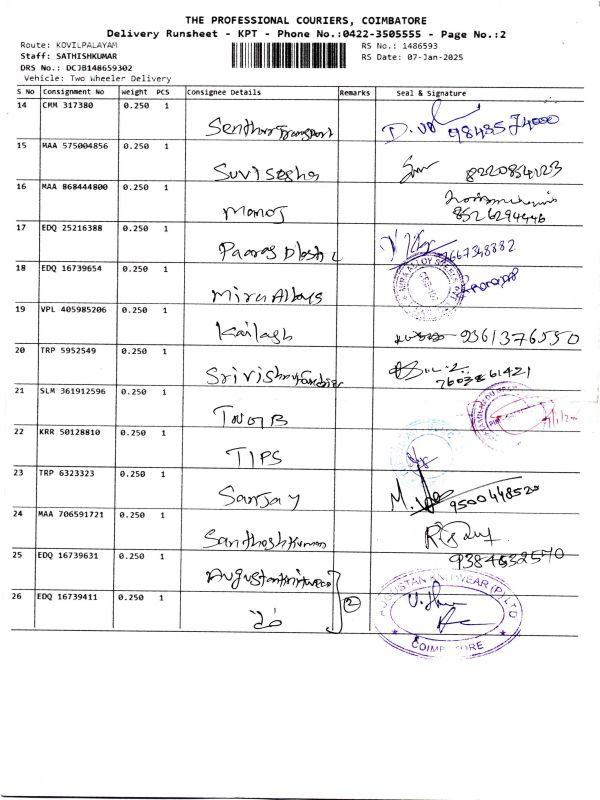 THE PROFESSIONAL COURIERS, COIMBATORE
Delivery Runsheet - KPT - Phone No.:0422-3505555 - Page No.:2
Route: KOVILPALAYAM
RS No.: 1486593
Staff: SATHISHKUMAR
RS Date: 07-Jan-2025
DRS No.: DCJB148659302
Vehicle: Two Wheeler Delivery
S No Consignment No Weight PCS Consignee Details Remarks Seal & Signature
14 CMM 317380 0.250 1
Senthur Transport 98435 74000
15 MAA 575004856 0.250 1
Suvisesha 8220834123
16 MAA 868444800 0.250 1
Manoj 8526294446
17 EDQ 25216388 0.250 1
Paaras Plastic 7667348882
18 EDQ 16739654 0.250 1
Mira Alloys
19 VPL 405985206 0.250 1
Kailash 9361376550
20 TRP 5952549 0.250 1
61421
21 SLM 361912596 0.250 1
22 KRR 50128810 0.250 1
TIPS
23 TRP 6323323 0.250 1
Sanjay 9500448520
24 MAA 706591721 0.250 1
Santhoshkumar
9384632570
25 EDQ 16739631 0.250 1
26 EDQ 16739411 0.250 1
2
AUGUSTAN KNITWEAR (P) LTD
COIMBATORE